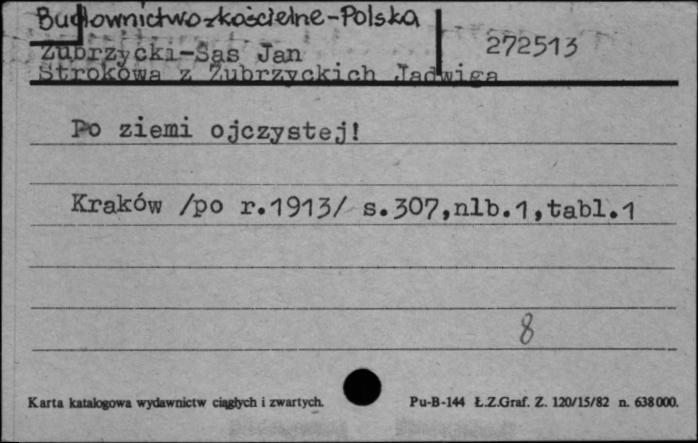 Budownictwo-kościelne-Polska
Zubrzycki-Sas Jan
272513
Strokowa z Zubrzyckich Jadwiga
Po ziemi ojczystej!
Kraków /po r.1913/ s.307,nlb.1,tabl.1
8
Karta katalogowa wydawnictw ciągłych i zwartych.
Pu-B-144 Ł.Z.Graf. Z. 120/15/82 n. 638000.